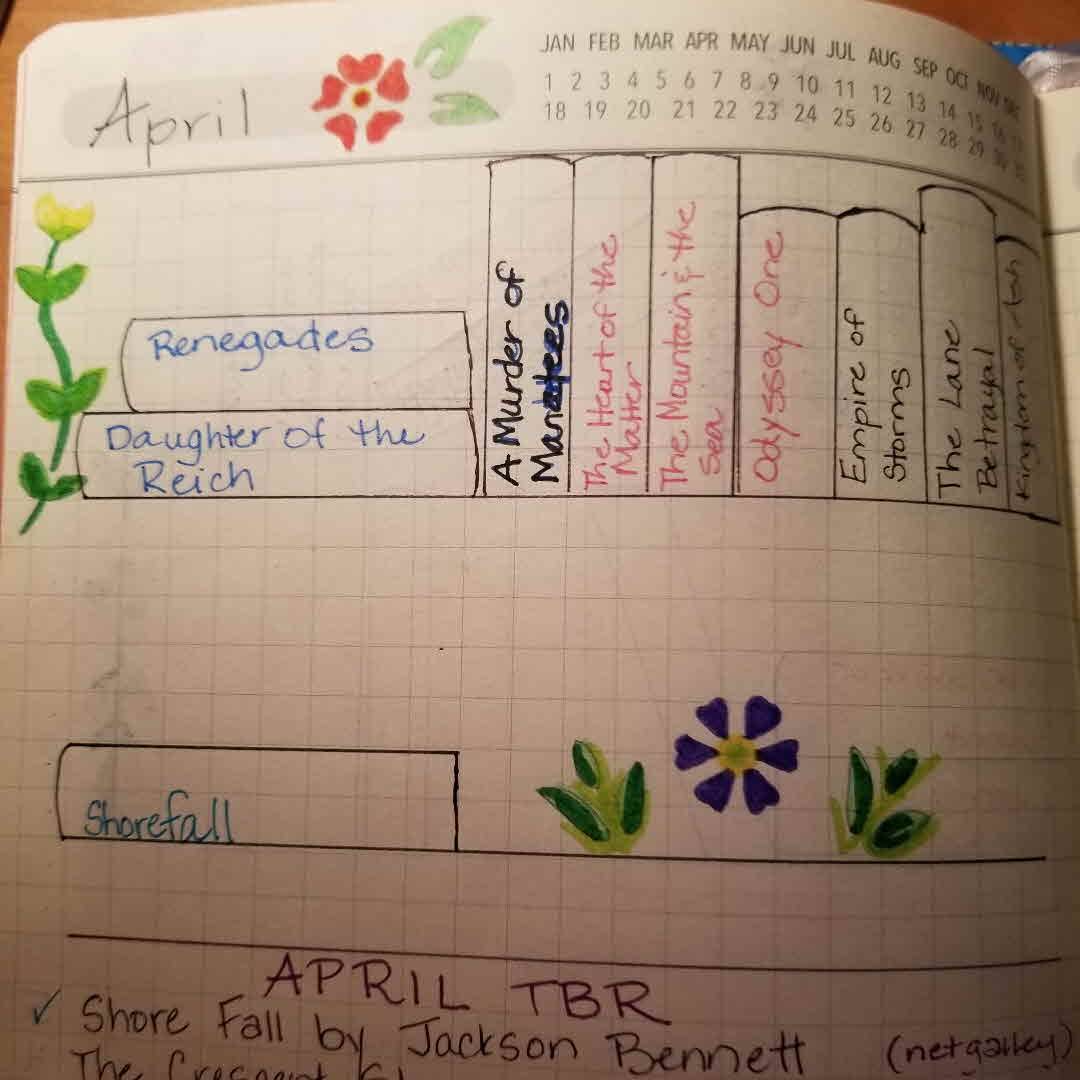 April
JAN FEB MAR APR MAY JUN JUL AUG SEP OCT NOV DEC
1 2 3 4 5 6 7 8 9 10 11 12 13 14 15 16 17
18 19 20 21 22 23 24 25 26 27 28 29 30 31
Renegades
Daughter of the
Reich
A Murder of
Manatees
The Heart of the
Matter
The Mountain & the
Sea
Odyssey One
Empire of
Storms
The Lane
Betrayal
Kingdom of Ash
Shorefall
APRIL TBR
✓ Shore Fall by Jackson Bennett (netgalley)
The Crescent